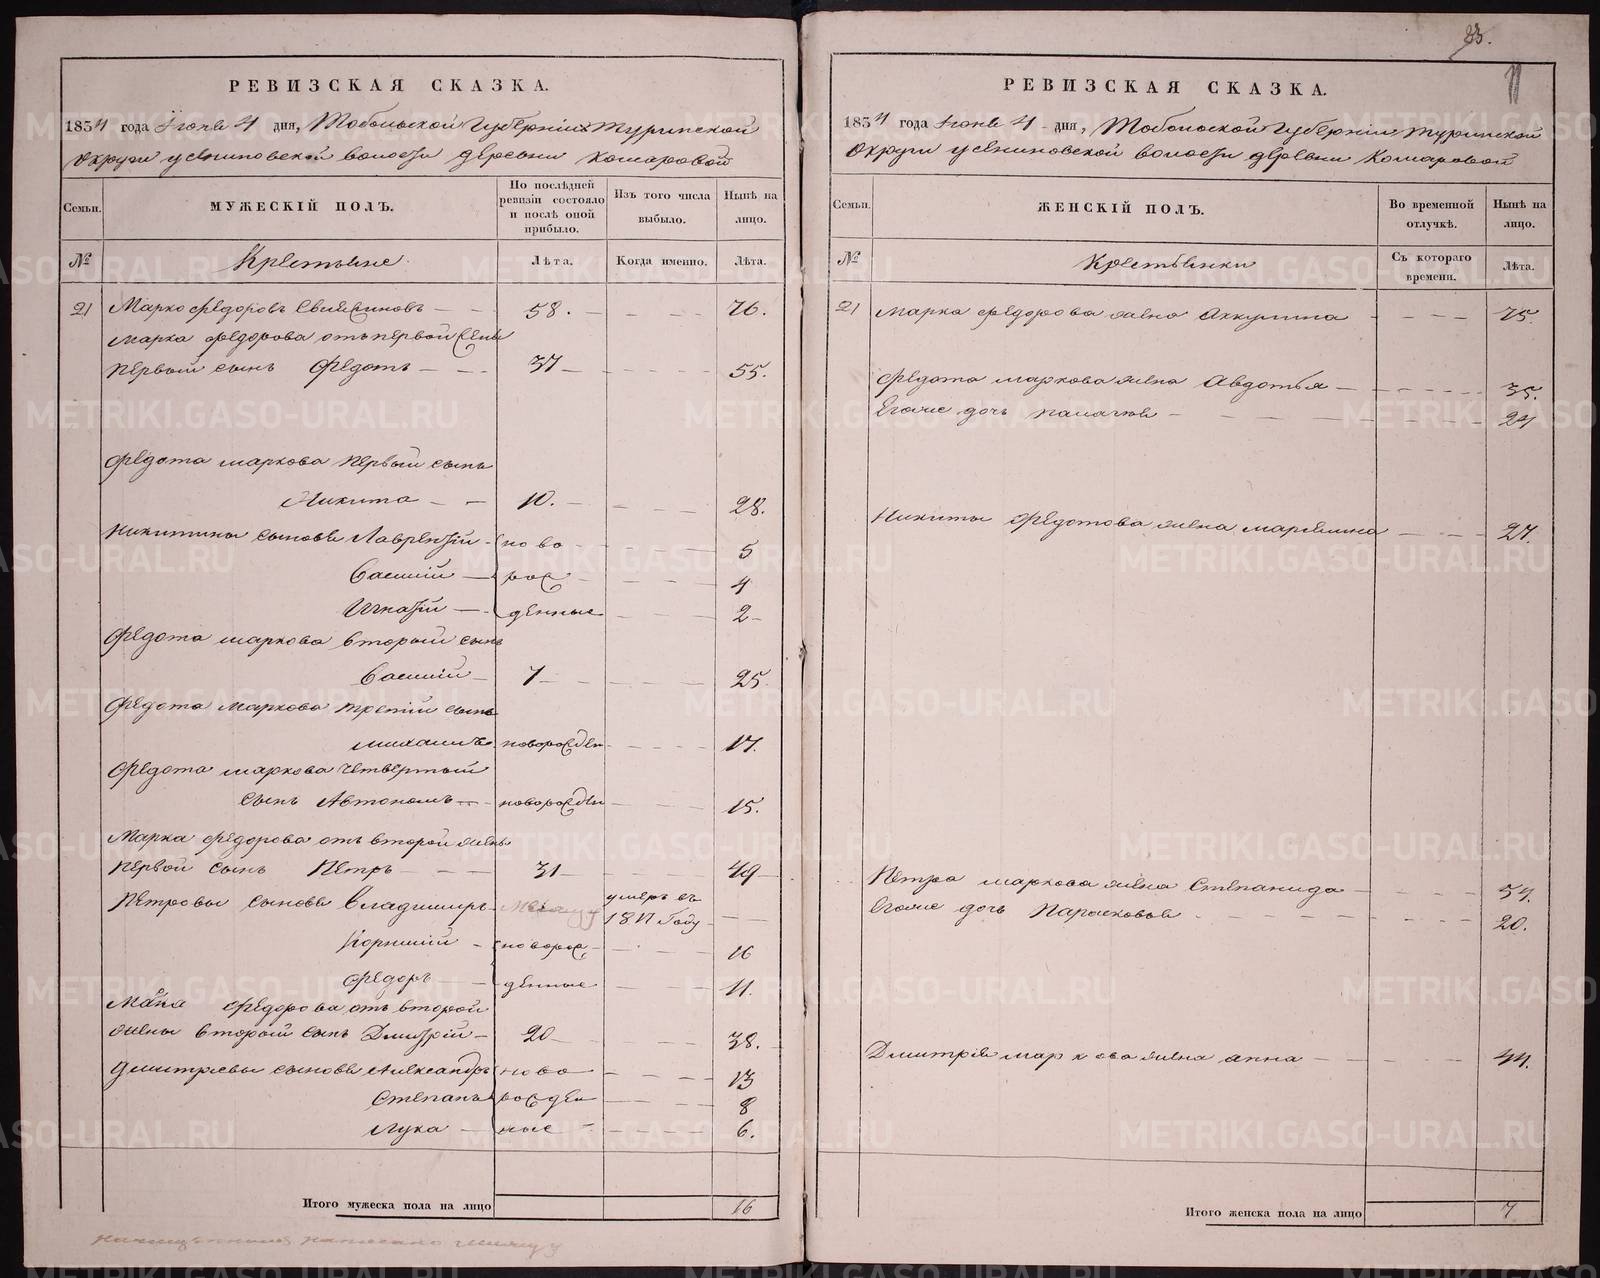 РЕВИЗСКАЯ СКАЗКА.
1834 года Іюня 4 дня, Тобольской Губерніи Туринской
Округи Усениновской волости деревни Комаровой
Семьи. МУЖЕСКІЙ ПОЛЪ. По послѣдней ревизіи состояло и послѣ оной прибыло. Изъ того числа выбыло. Нынѣ на лицо.
№ Крестьяне. Лѣта. Когда именно. Лѣта.
21 Марко Федоровъ 58. 76.
Марка Федорова отъ первой жены
первый сынъ Федотъ 37 55.
Федота Маркова первый сынъ
Никита 10. 28.
Никитины сыновья Лаврентій ново 5
Василій рож 4
Игнатій денные 2
Федота Маркова вторый сынъ
Василій 7 25.
Федота Маркова третій сынъ
Михаилъ новорожден 17.
Федота Маркова четвертый
сынъ Автономъ новорожден 15.
Марка Федорова отъ второй жены
первой сынъ Петръ 31 49
Петровы сыновья Владимиръ умеръ въ
18 Году
Корнилій новорож 16
Федоръ денные 11.
Марка Федорова отъ второй
жены вторый сынъ Дмитрій 20 38.
Дмитріевы сыновья Александръ ново 13
Степанъ рожден 8
Лука ные 6.
Итого мужеска пола на лицо 16
23.
РЕВИЗСКАЯ СКАЗКА.
1834 года Іюня 4 дня, Тобольской Губерніи Туринской
Округи Усениновской волости деревни Комаровой
Семьи. ЖЕНСКІЙ ПОЛЪ. Во временной отлучкѣ. Нынѣ на лицо.
№ Крестьянки Съ котораго времени. Лѣта.
21 Марка Федорова жена Аккулина 75.
Федота Маркова жена Авдотья 35.
Егоже дочь 24
Никиты Федотова жена Маремьяна 27.
Петра Маркова жена Степанида 54.
Егоже дочь Парасковья 20.
Дмитрія Маркова жена Анна 44.
Итого женска пола на лицо 7
METRIKI.GASO-URAL.RU